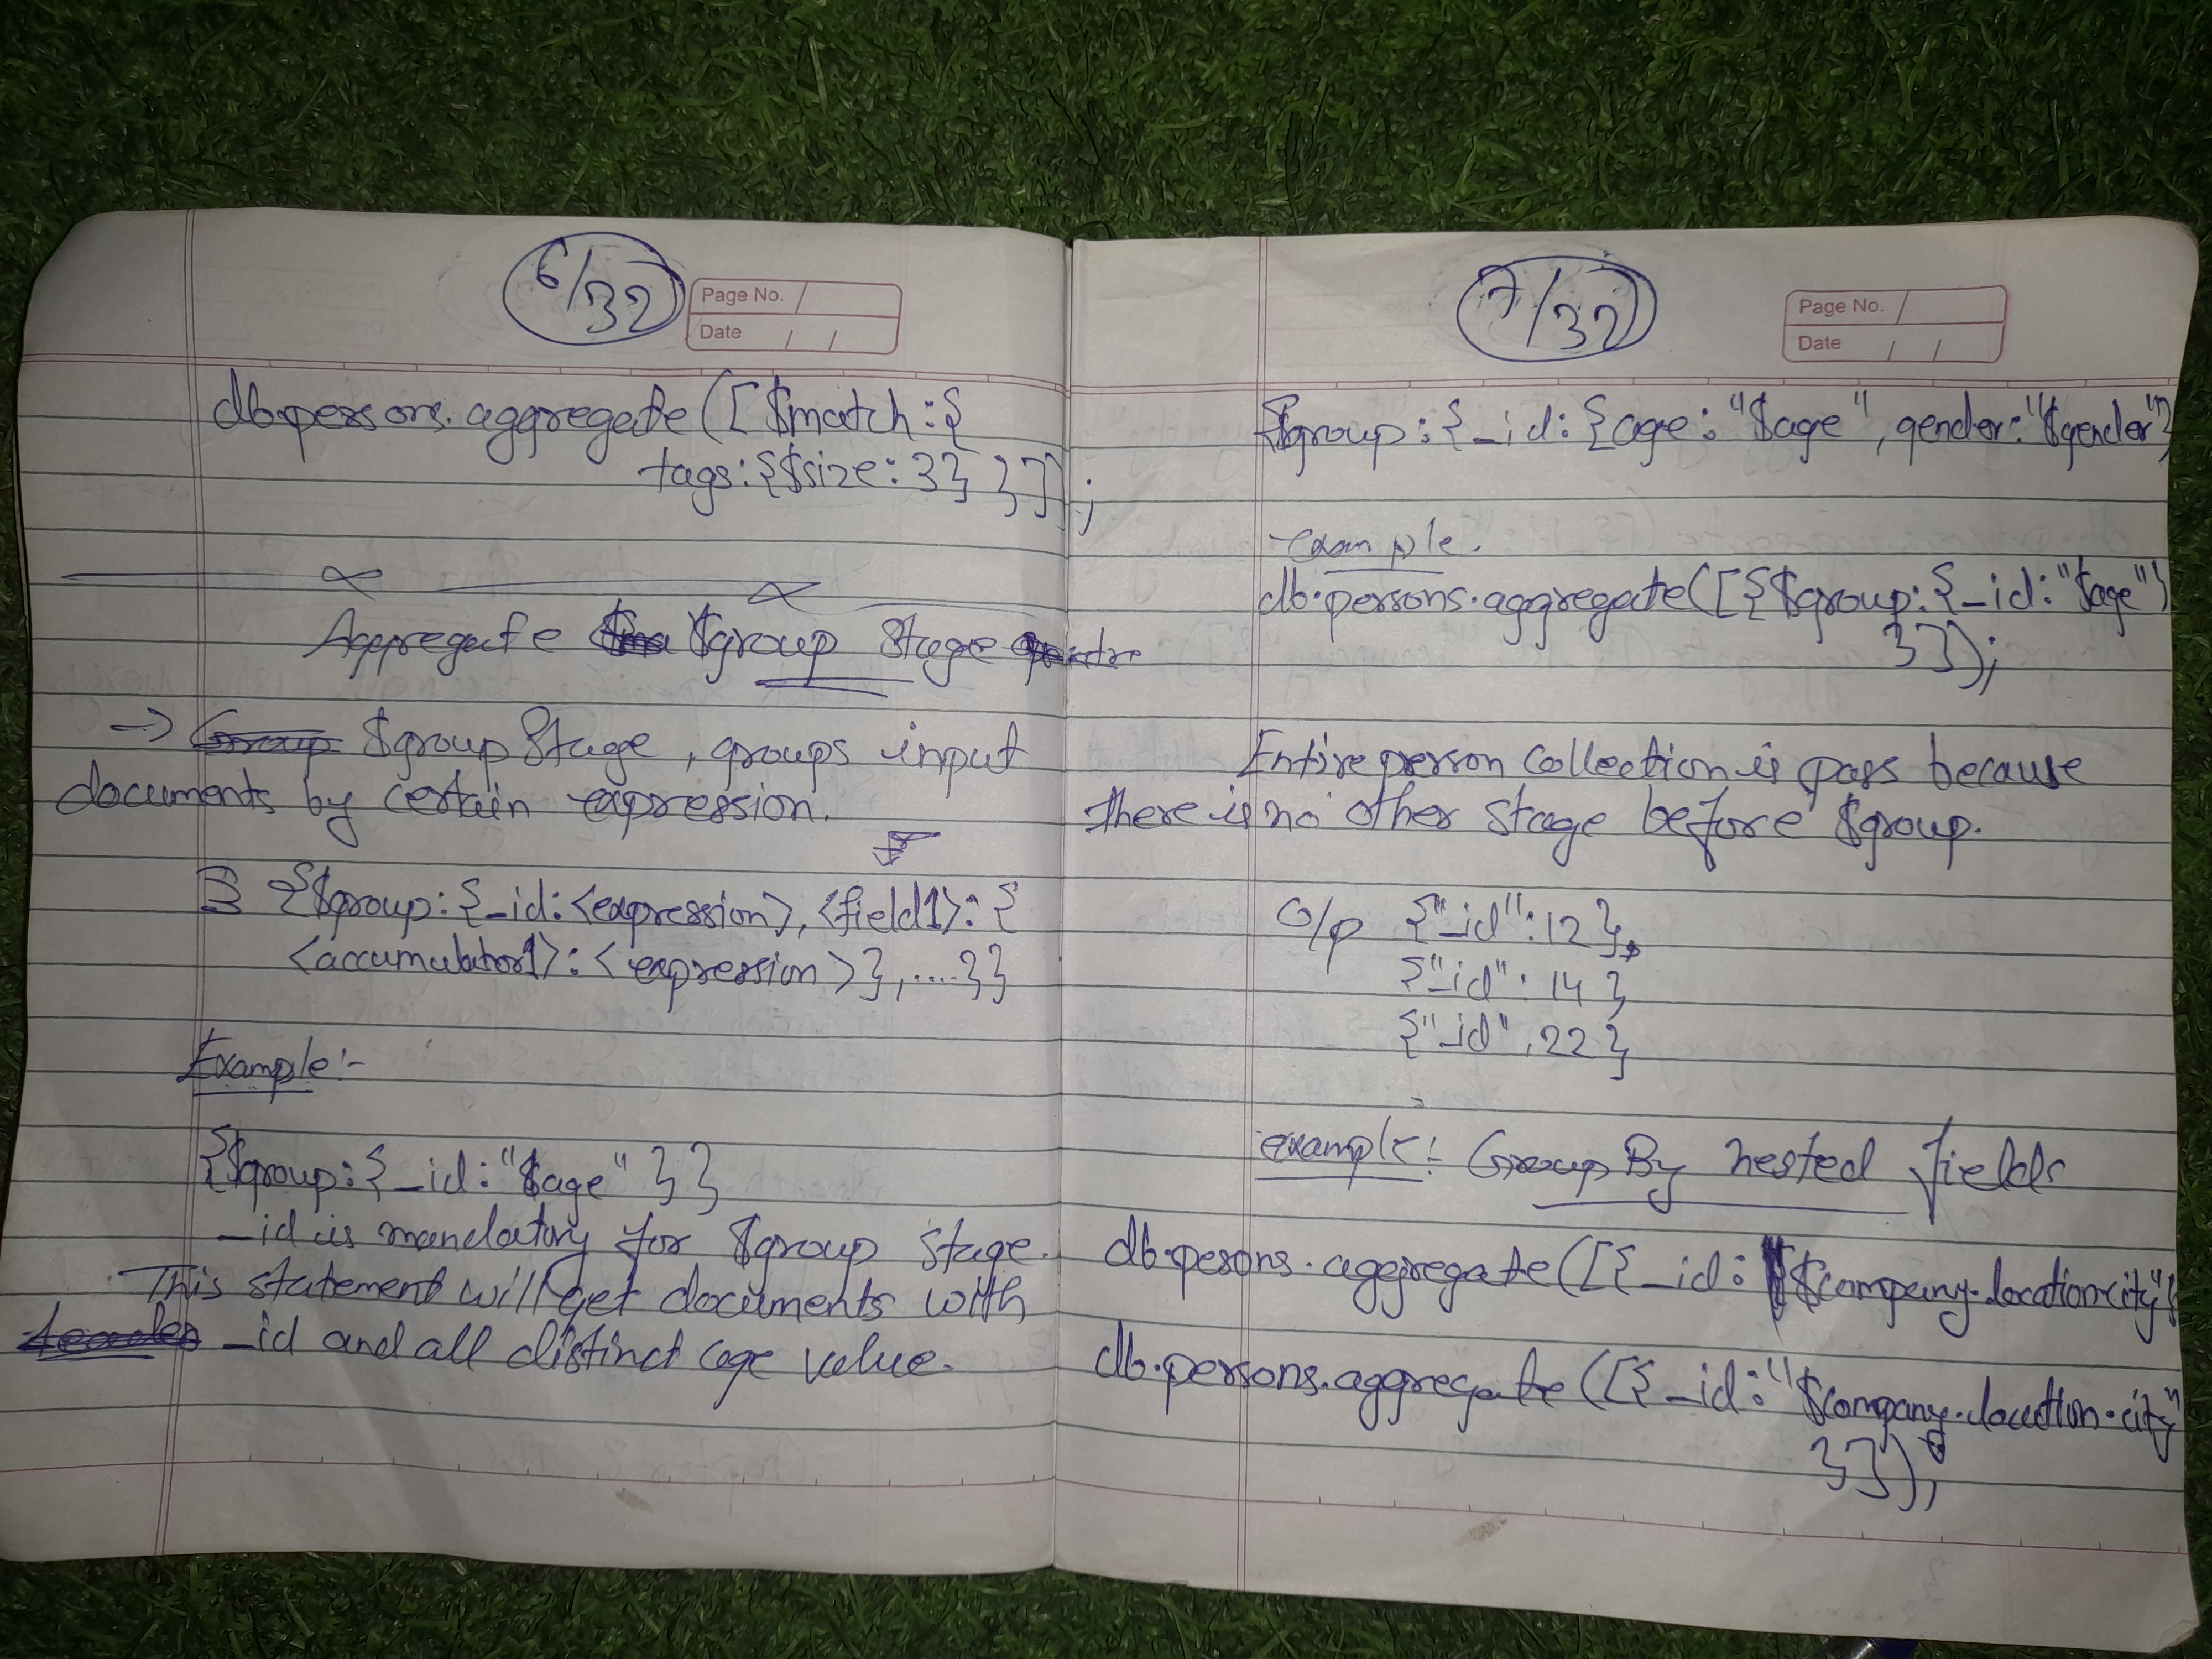 6/32
Page No.
Date / /
db.persons.aggregate([$match:{
tags:{$size:3}}]);
Aggregate $group Stage
→ $group Stage, groups input
documents by certain expression.
{$group:{_id:<expression>,<field1>:{
<accumulator1>:<expression>},....}}
Example:-
{$group:{_id:"$age"}}
_id is mandatory for $group Stage.
This statement will get documents with
_id and all distinct age value.
7/32
Page No.
Date / /
{$group:{_id:{age:"$age",gender:"$gender"}
Example:
db.persons.aggregate([{$group:{_id:"$age"}
}]);
Entire person collection is pass because
there is no other stage before $group.
O/p {"_id":12},
{"_id":14}
{"_id".22}
example:- Group By nested fields
db.persons.aggregate([{_id:"$company.location.city"}
db.persons.aggregate([{_id:"$company.location.city"
}]);